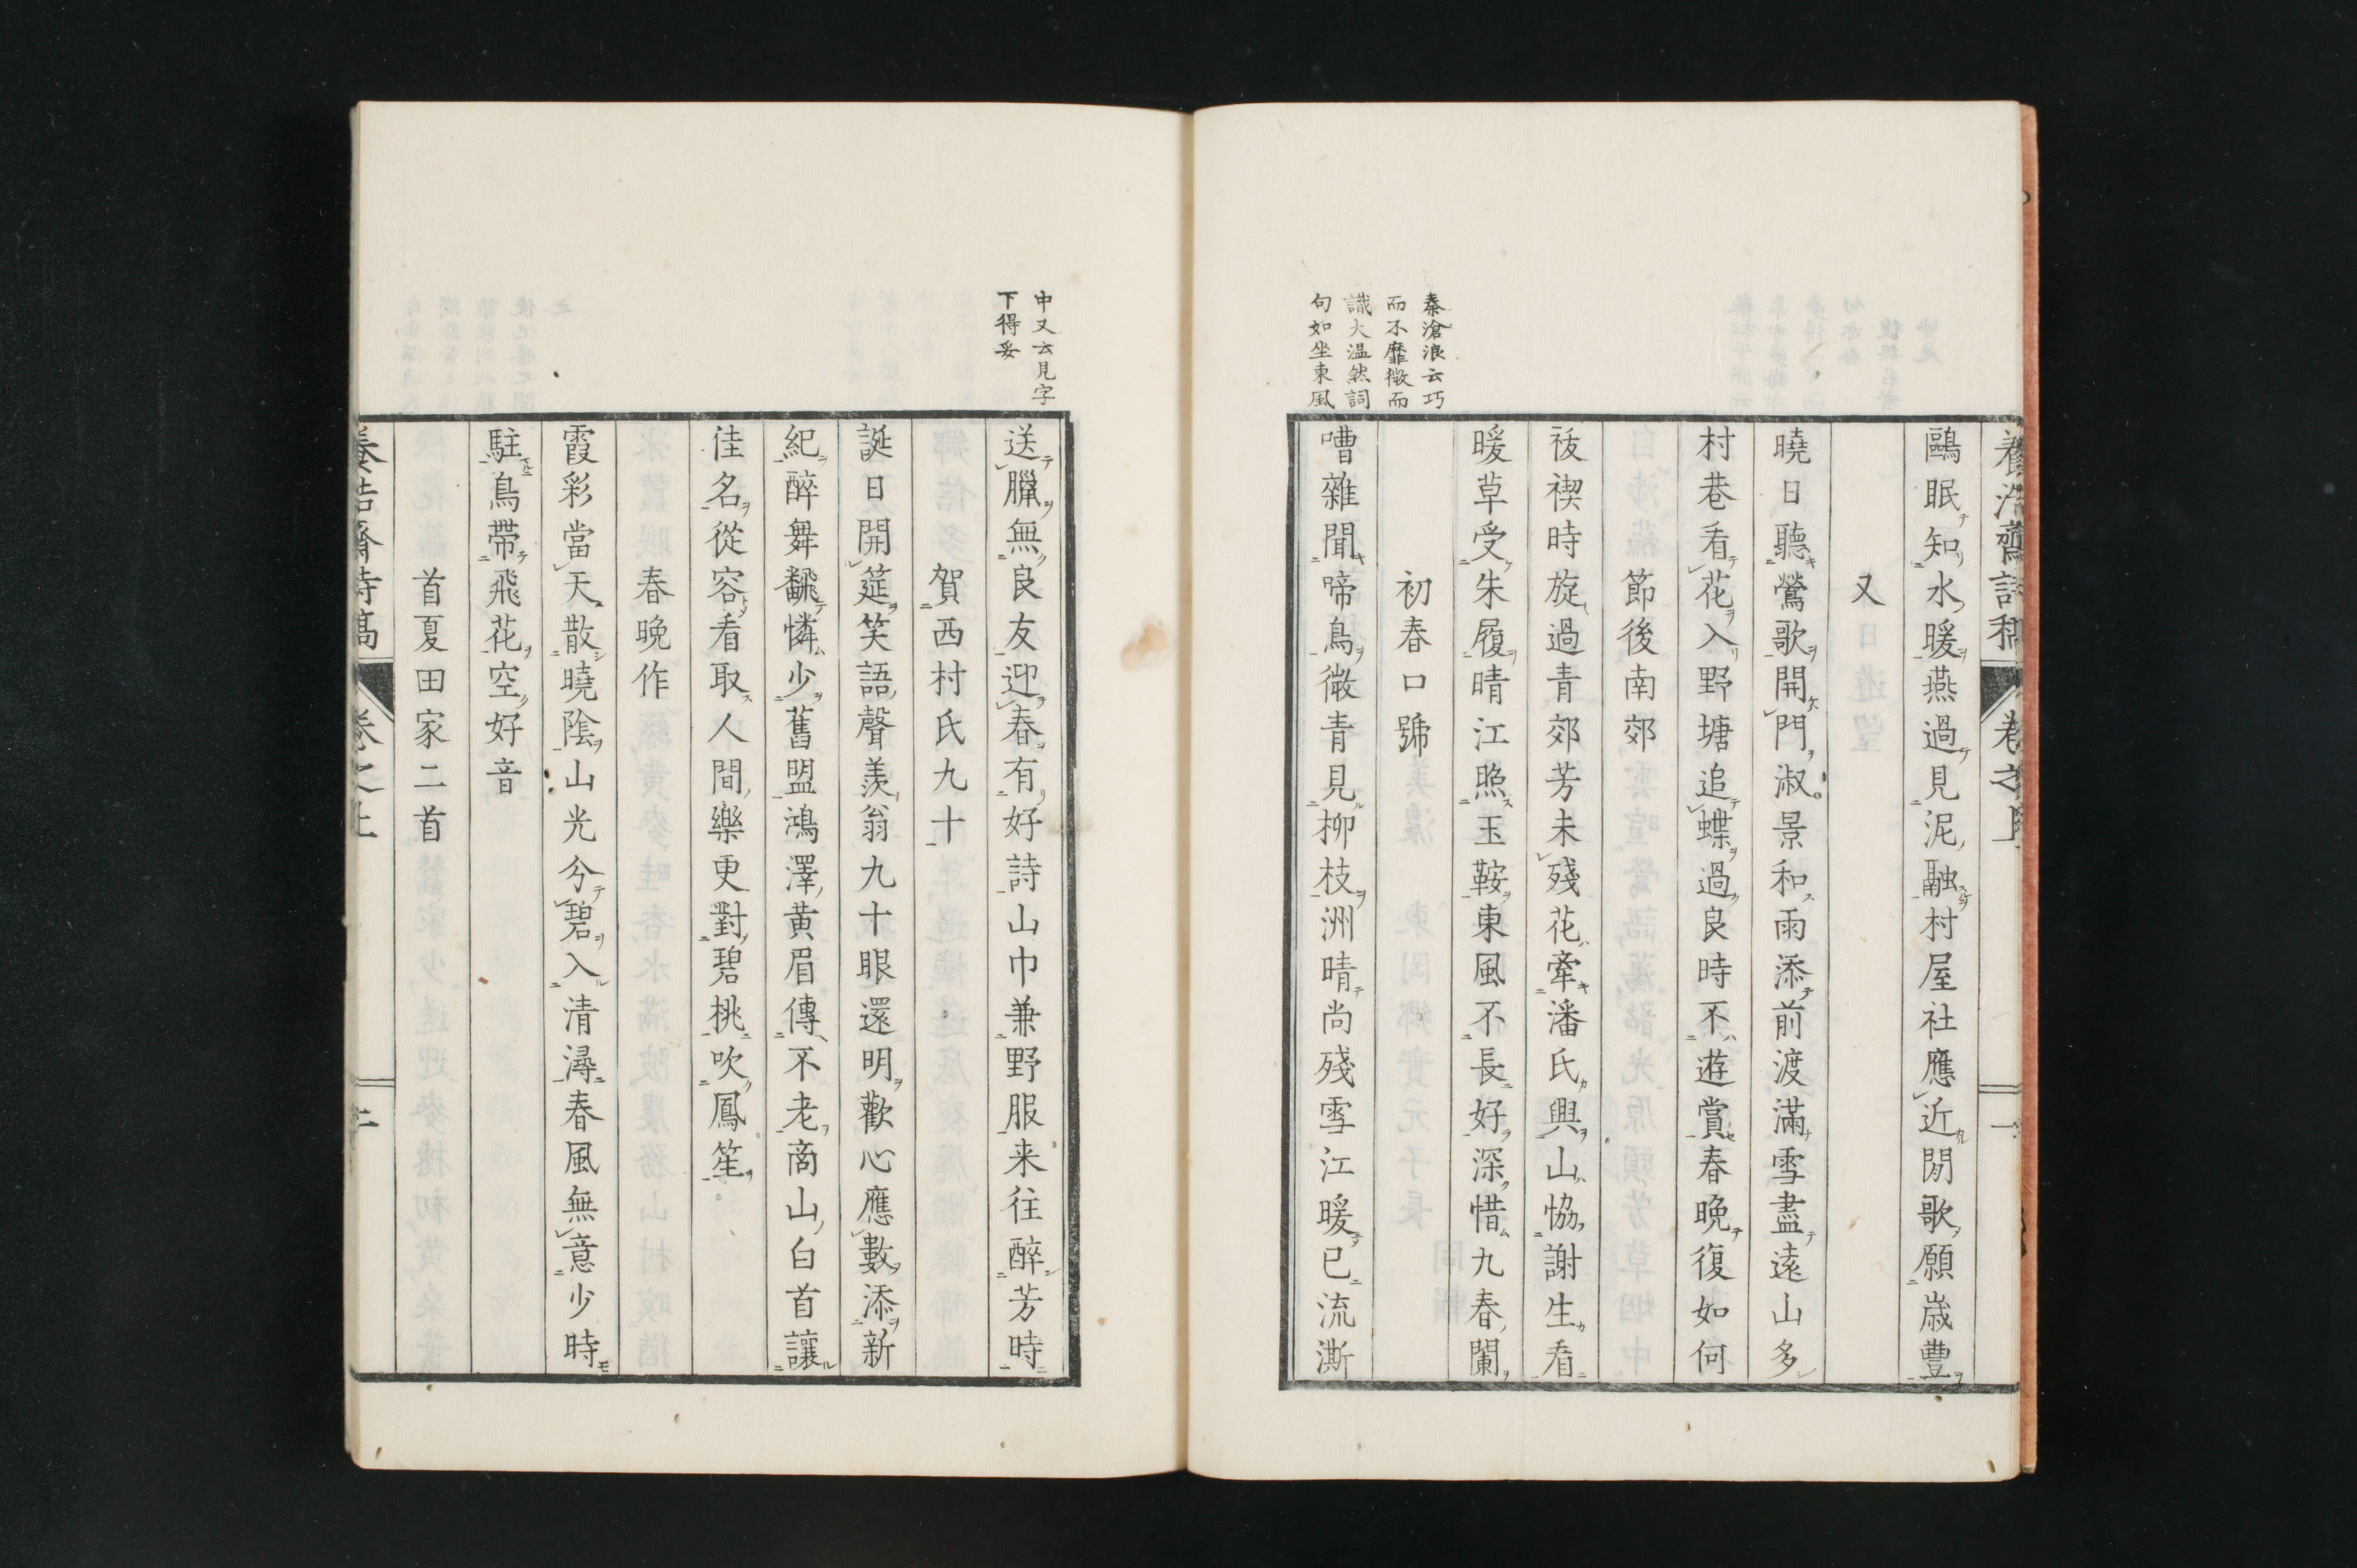 鷗眠知水暖燕過見泥融村屋社應近閒歌願歳豐
又
曉日聽鶯歌開門淑景和雨添前渡滿雪盡遠山多
村巷看花入野塘追蝶過良時不遊賞春晩復如何
節後南郊
祓禊時旋過青郊芳未殘花牽潘氏興山恊謝生看
暖草受朱履晴江照玉鞍東風不長好深惜九春闌
秦滄浪云巧
而不靡微而
識大温然詞
句如坐東風
初春口號
嘈雜聞啼鳥微青見柳枝洲晴尚殘雪江暖已流澌
中又云見字
下得妥
送臘無良友迎春有好詩山巾兼野服来往醉芳時
賀西村氏九十
誕日開筵笑語聲羨翁九十眼還明歡心應數添新
紀醉舞飜憐少舊盟鴻澤黄眉傳不老商山白首讓
佳名從容看取人間樂更對碧桃吹鳳笙
春晩作
霞彩當天散曉陰山光分碧入清潯春風無意少時
駐鳥帶飛花空好音
首夏田家二首
卷之上